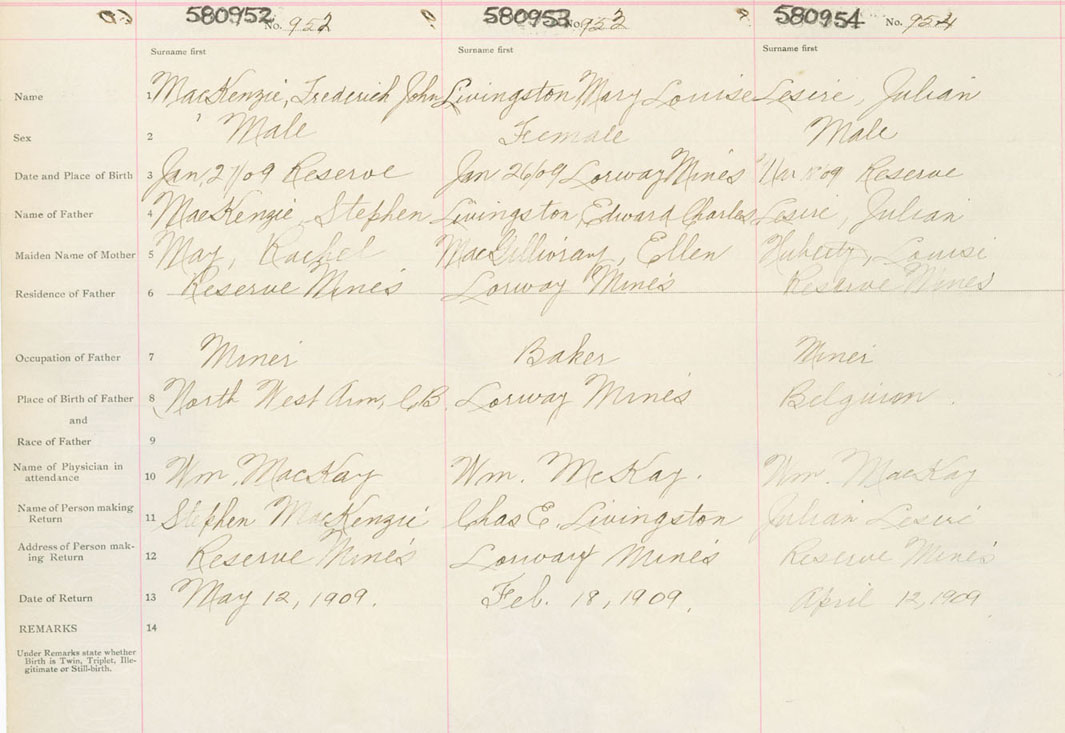 580952 No. 952 580953 No. 953 580954 No. 954
Surname first Surname first Surname first
Name 1 MacKenzie, Frederich John Livingston Mary Louise Lesire, Julian
Sex 2 Male Female Male
Date and Place of Birth 3 Jan, 27/09 Reserve Jan 26/09 Lorway Mines 09 Reserve
Name of Father 4 MacKenzie, Stephen Livingston, Edward Charles Lesire, Julian
Maiden Name of Mother 5 May, Rachel MacGillivray, Ellen Louise
Residence of Father 6 Reserve Mines Lorway Mines Reserve Mines
Occupation of Father 7 Miner Baker Miner
Place of Birth of Father 8 North West Arm, C.B. Lorway Mines Belguium.
and
Race of Father 9
Name of Physician in
attendance 10 Wm. MacKay Wm. McKay. Wm. MacKay
Name of Person making
Return 11 Stephen MacKenzie Chas E. Livingston Julian Lesire
Address of Person mak-
ing Return 12 Reserve Mines Lorway Mines Reserve Mines
Date of Return 13 May 12, 1909. Feb. 18, 1909. April 12, 1909
REMARKS 14
Under Remarks state whether
Birth is Twin, Triplet, Ille-
gitimate or Still-birth.